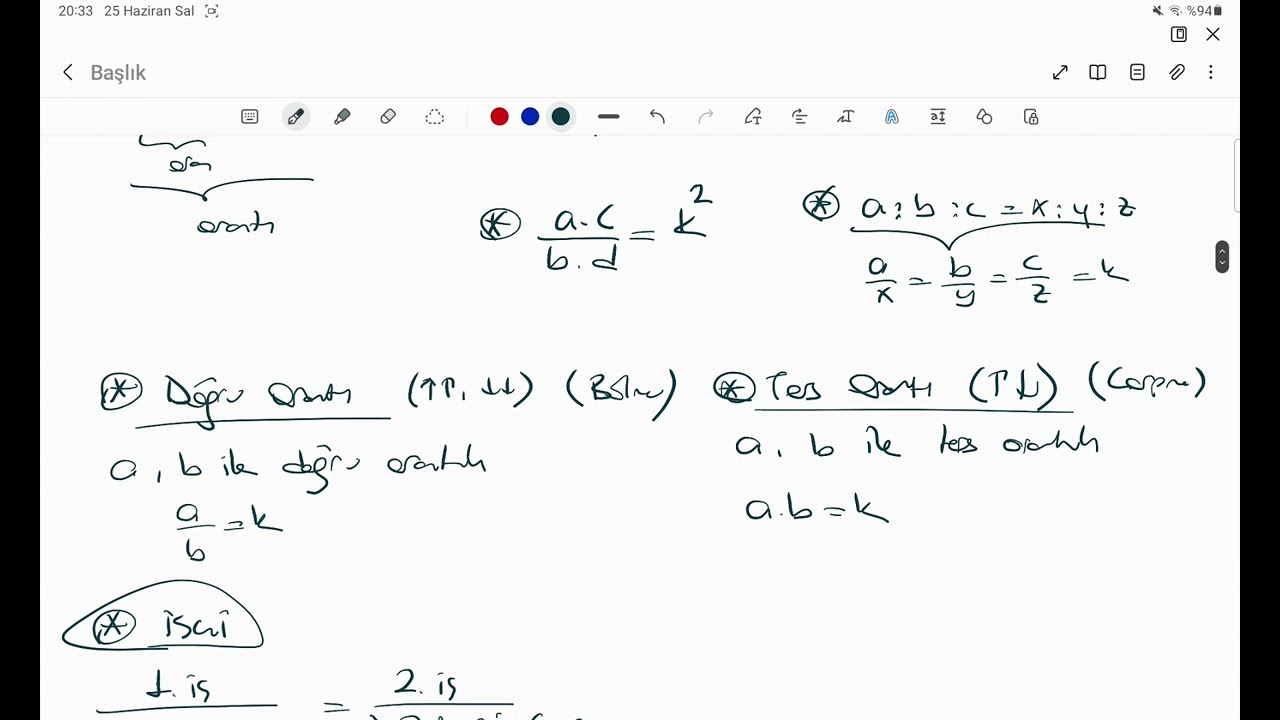 20:33 25 Haziran Sal %94
Başlık
oran
orantı
a.c / b.d = k²
a : b : c = x : y : z
a/x = b/y = c/z = k
Doğru Orantı (↑↑, ↓↓) (Bölme)
a, b ile doğru orantılı
a/b = k
Ters Orantı (↑↓) (Çarpma)
a, b ile ters orantılı
a.b = k
işçi
1. iş = 2. iş